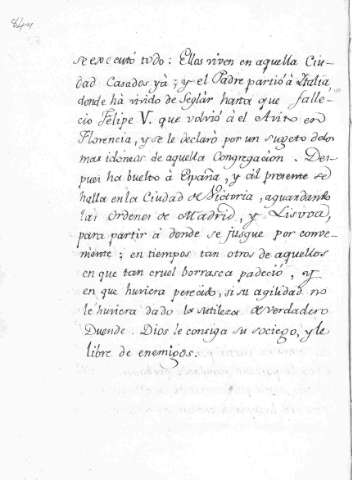 se executó todo: Ellas viven en aquella Ciu-
dad Casadas yà; y el Padre partió à Italia
donde hà vivido de Seglàr hasta que falle-
ciò Felipe V. que volvió à el Avito en
Florencia, y se le declarò por un sugeto de los
mas idoneos de aquella Congregacion. Des-
pues ha buelto à España, y àl presente se
halla en la Ciudad de Victoria, aguardando
las Ordenes de Madrid, y Lisboa,
para partir à donde se jusgue por conve-
niente; en tiempos tan otros de aquellos
en que tan cruel borrasca padeciò, y
en que huviera perecido, si su agilidad no
le huviera dado la sutileza de verdadero
Duende. Dios le consiga su sociego, y le
libre de enemigos.